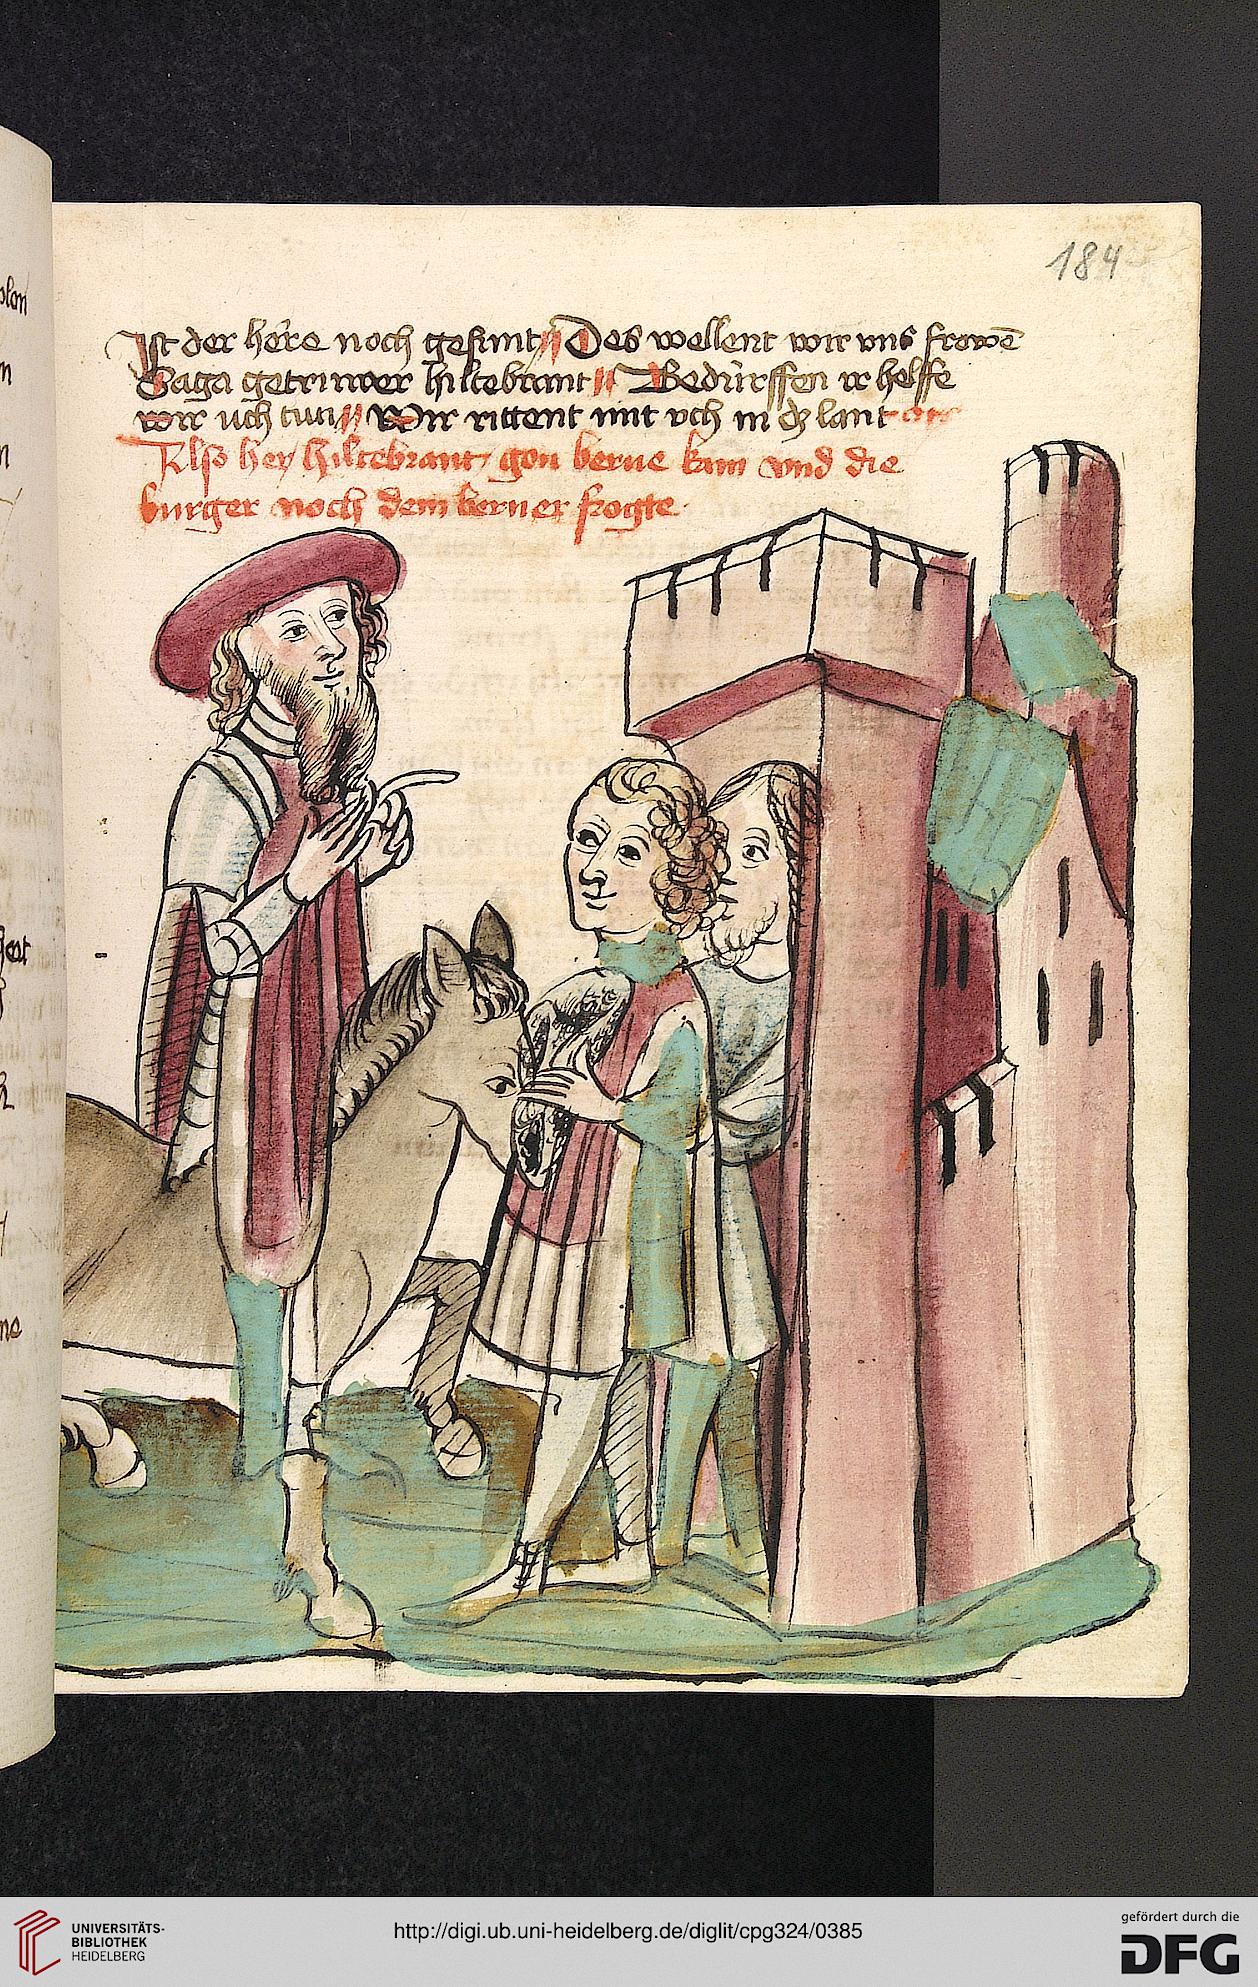 184
Ist der here noch gesunt Des wellent wir vns frowē
Saga getruwer hiltebrant Bedürffen ir helffe
wir uch tun Wir rittent mit vch in dz lant
Also her hiltebrant gon berne kam vnd die
burger noch dem berner frogte.
UNIVERSITÄTS-
BIBLIOTHEK
HEIDELBERG
http://digi.ub.uni-heidelberg.de/diglit/cpg324/0385
gefördert durch die
DFG